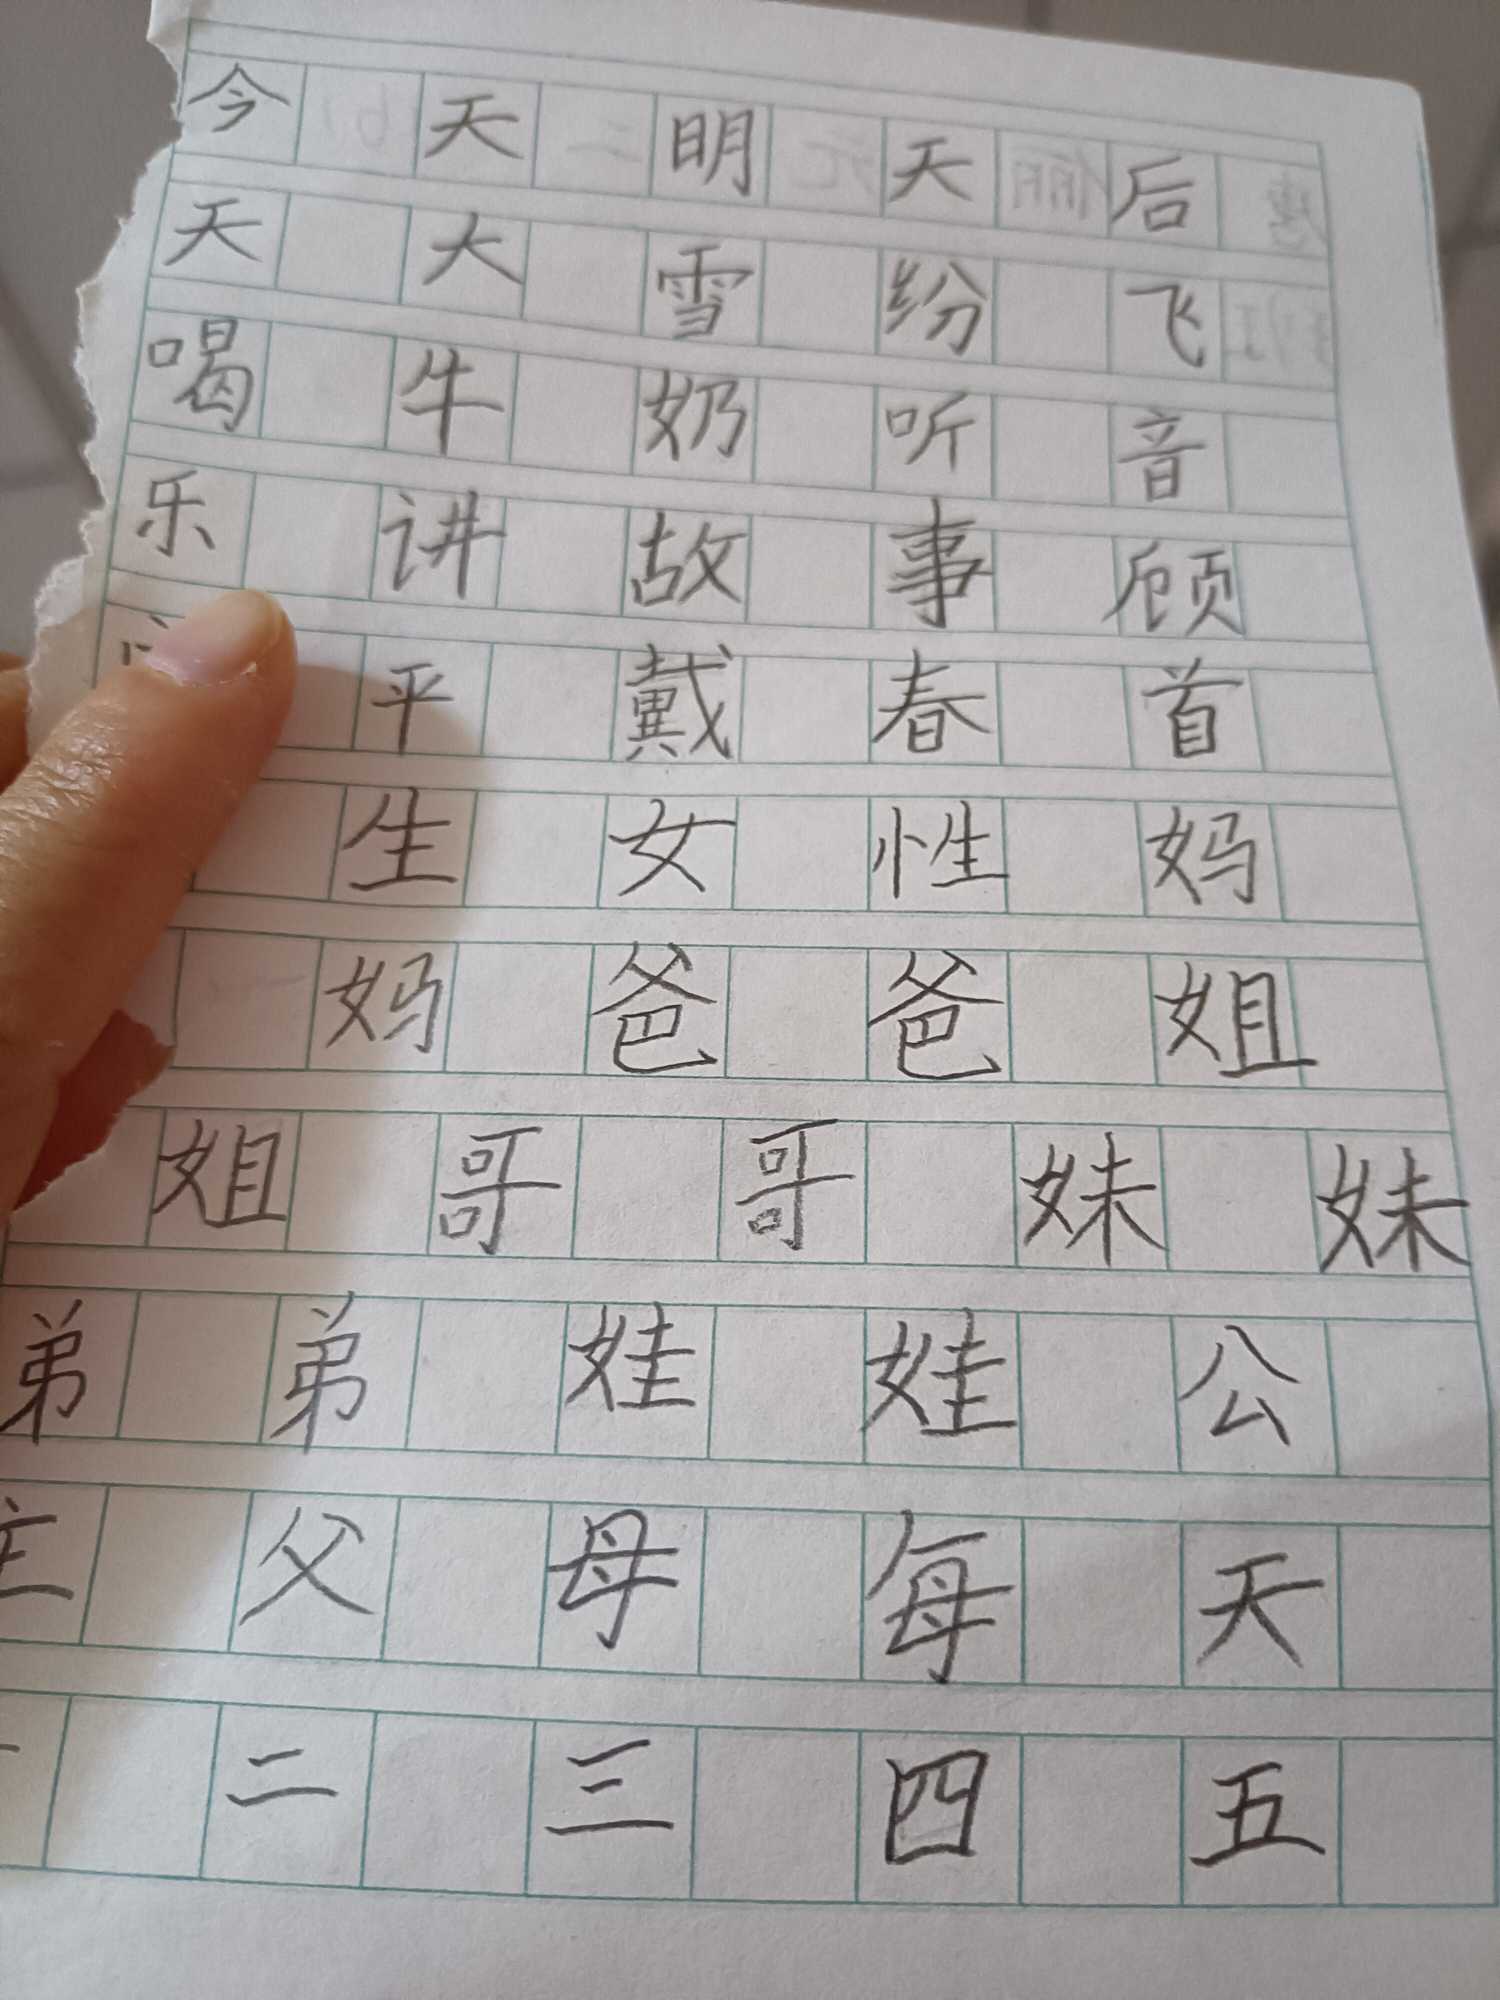 今天明天后
天大雪纷飞
喝牛奶听音
乐讲故事顾
平戴春首
生女性妈
妈爸爸姐
姐哥哥妹妹
弟弟娃娃公
父母每天
二三四五